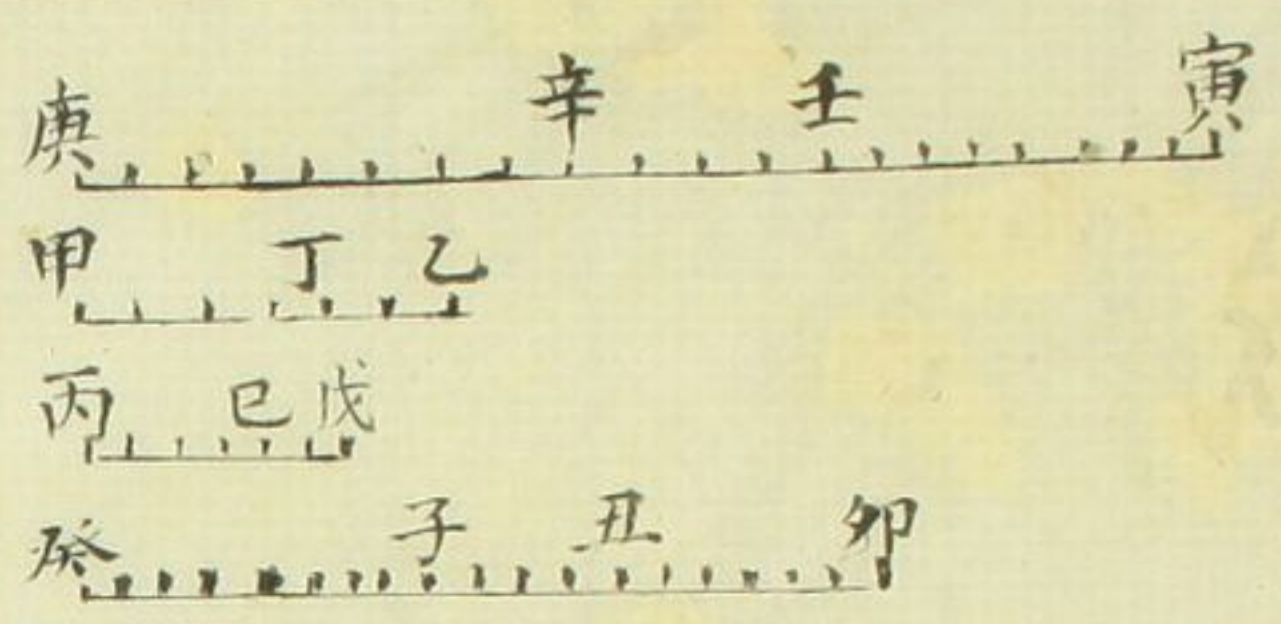 庚 辛 壬 寅
甲 丁 乙
丙 己 戊
癸 子 丑 卯